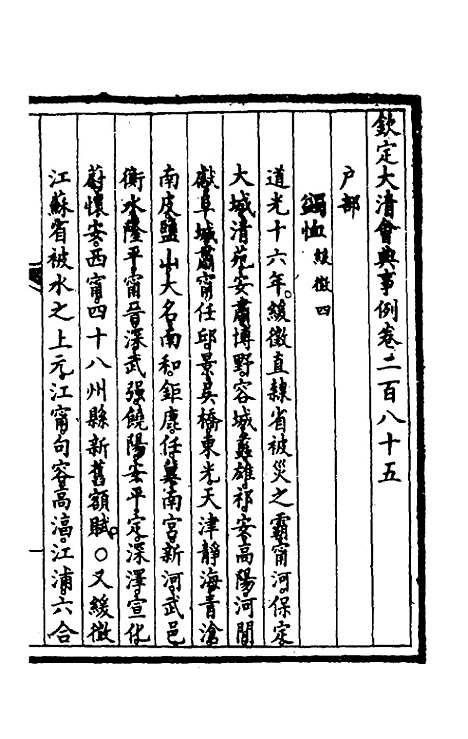 欽定大清會典事例卷二百八十五
戶部
蠲恤緩徵四
道光十六年。緩徵直隸省被災之霸甯河。保定
大城。清苑。安肅。博野。容城。蠡。雄。祁。安。高陽。河間
獻。阜城。肅甯。任邱。景。吳橋。東光。天津。靜海。青。滄
南皮。鹽山。大名。南和。鉅鹿。任。冀。南宮。新河。武邑
衡水。隆平。甯晉。深。武強。饒陽。安平。定。深澤。宣化
蔚。懷安。西甯。四十八州縣新舊額賦。○又緩徵
江蘇省被水之上元。江甯。句容。高淳。江浦。六合